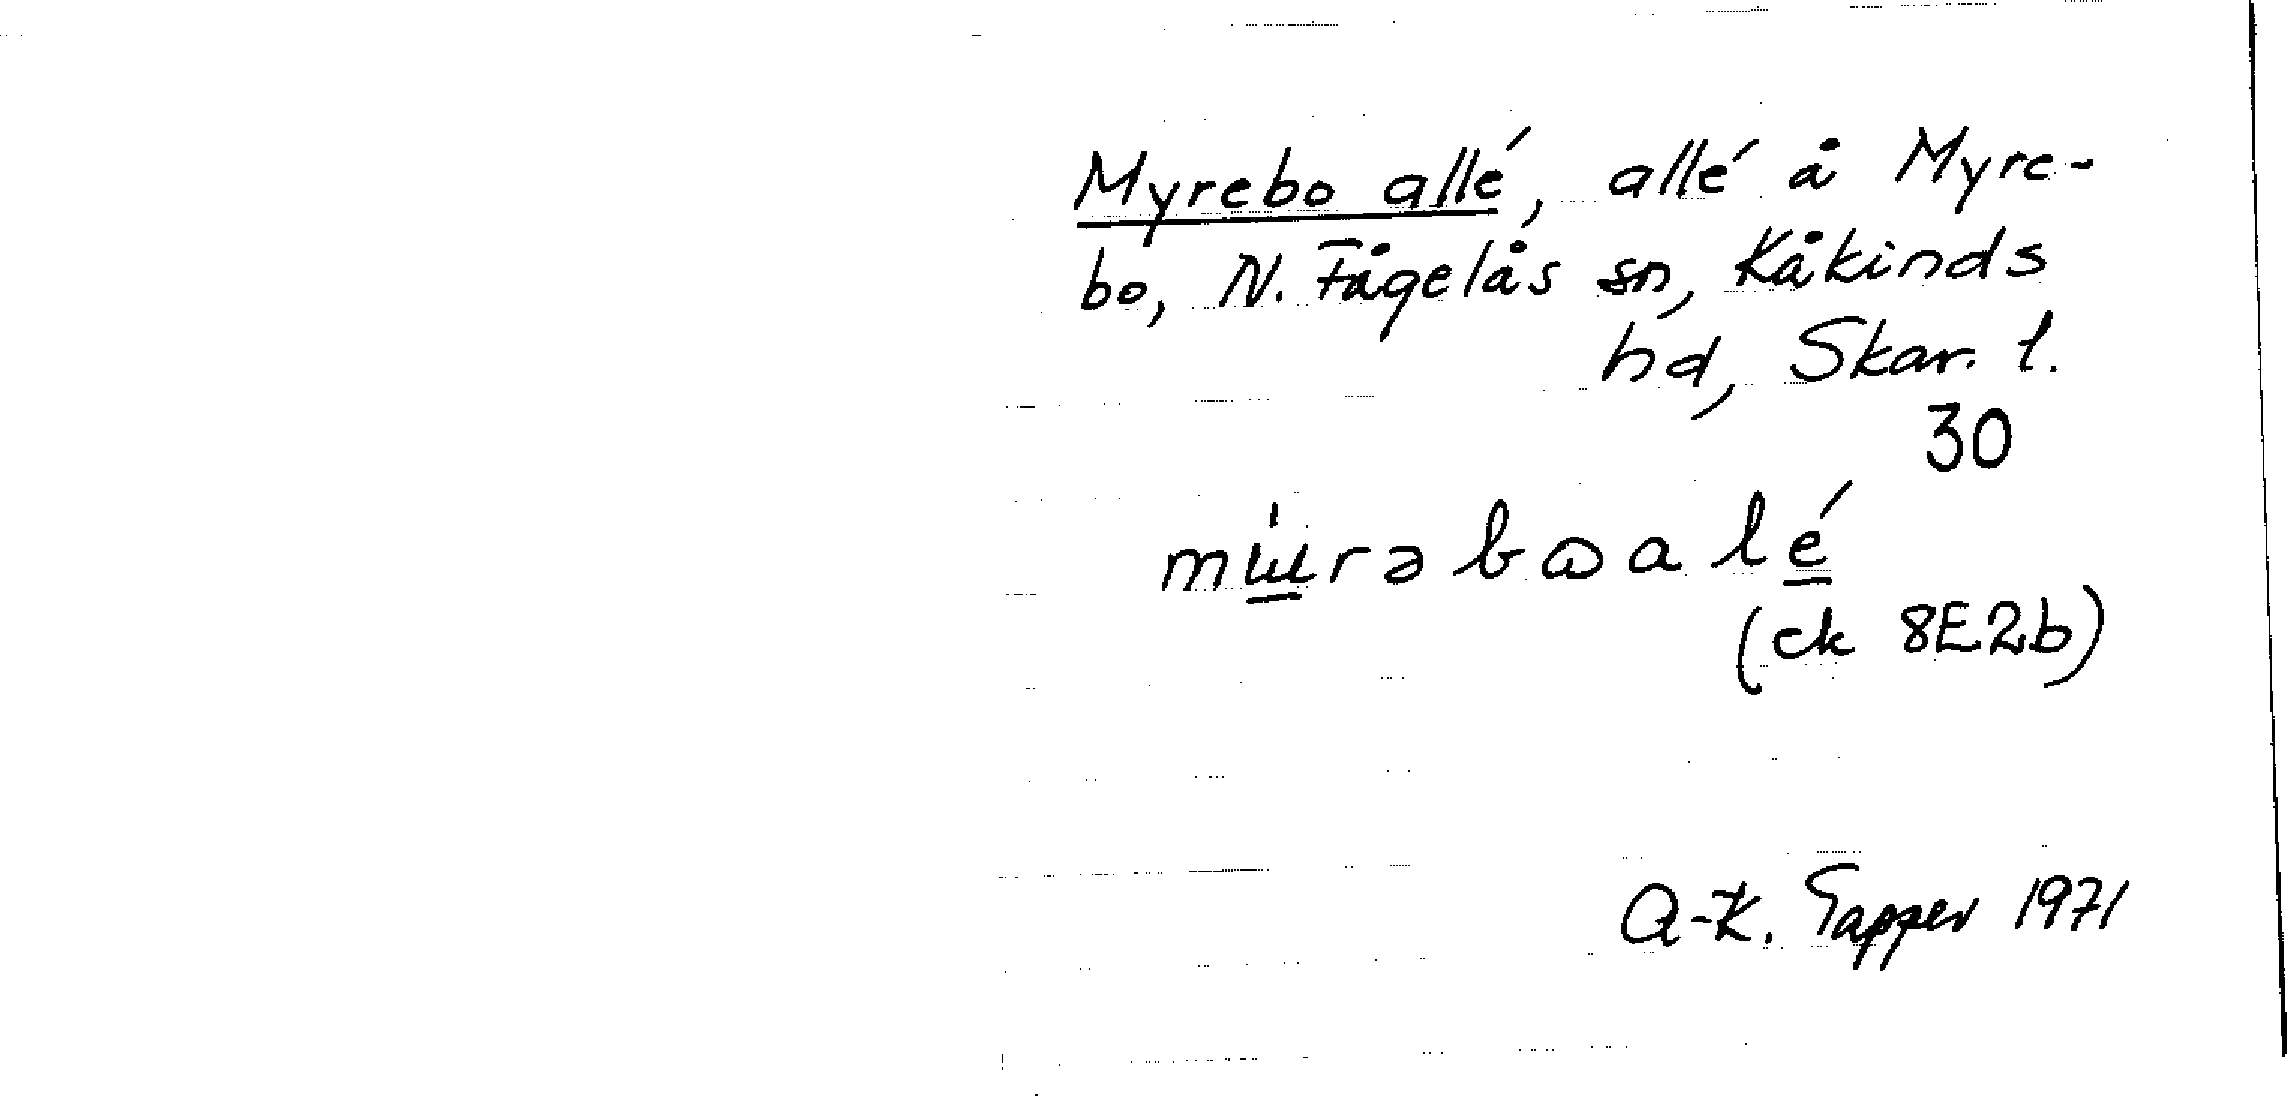 Myrebo allé, allé å Myre-
bo, N. Fågelås sn, Kåkinds
hd, Skar. l.
30
(ek 8E2b)
A-K. Tapper 1971